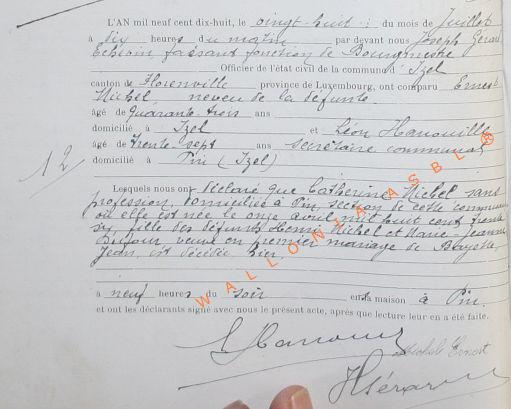 L'AN mil neuf cent dix-huit, le vingt huit du mois de Juillet
à dix heures du matin par devant nous Joseph Gérard
Echevin, faisant fonction de Bourgmestre
Officier de l'état civil de la commune d'Izel
canton de Florenville province de Luxembourg, ont comparu Ernest
Michel, neveu de la défunte
âgé de quarante trois ans
domicilié à Izel et Léon Hanouille
12
âgé de trente sept ans secrétaire communal
domicilié à Pin (Izel)
Lesquels nous ont déclaré que Catherine Michel sans
profession, domiciliée à Pin, section de cette commune
où elle est née le onze avril mil huit cent trente
six, fille des défunts Henri Michel et Marie-Jeanne
Dufour, veuve en premier mariage de
Jean, est décédée hier
à neuf heures du soir en sa maison à Pin
et ont les déclarants signé avec nous le présent acte, après que lecture leur en a été faite.
L Hanouille
Michel Ernest
J Gérard
WALLONIA ASBL ®